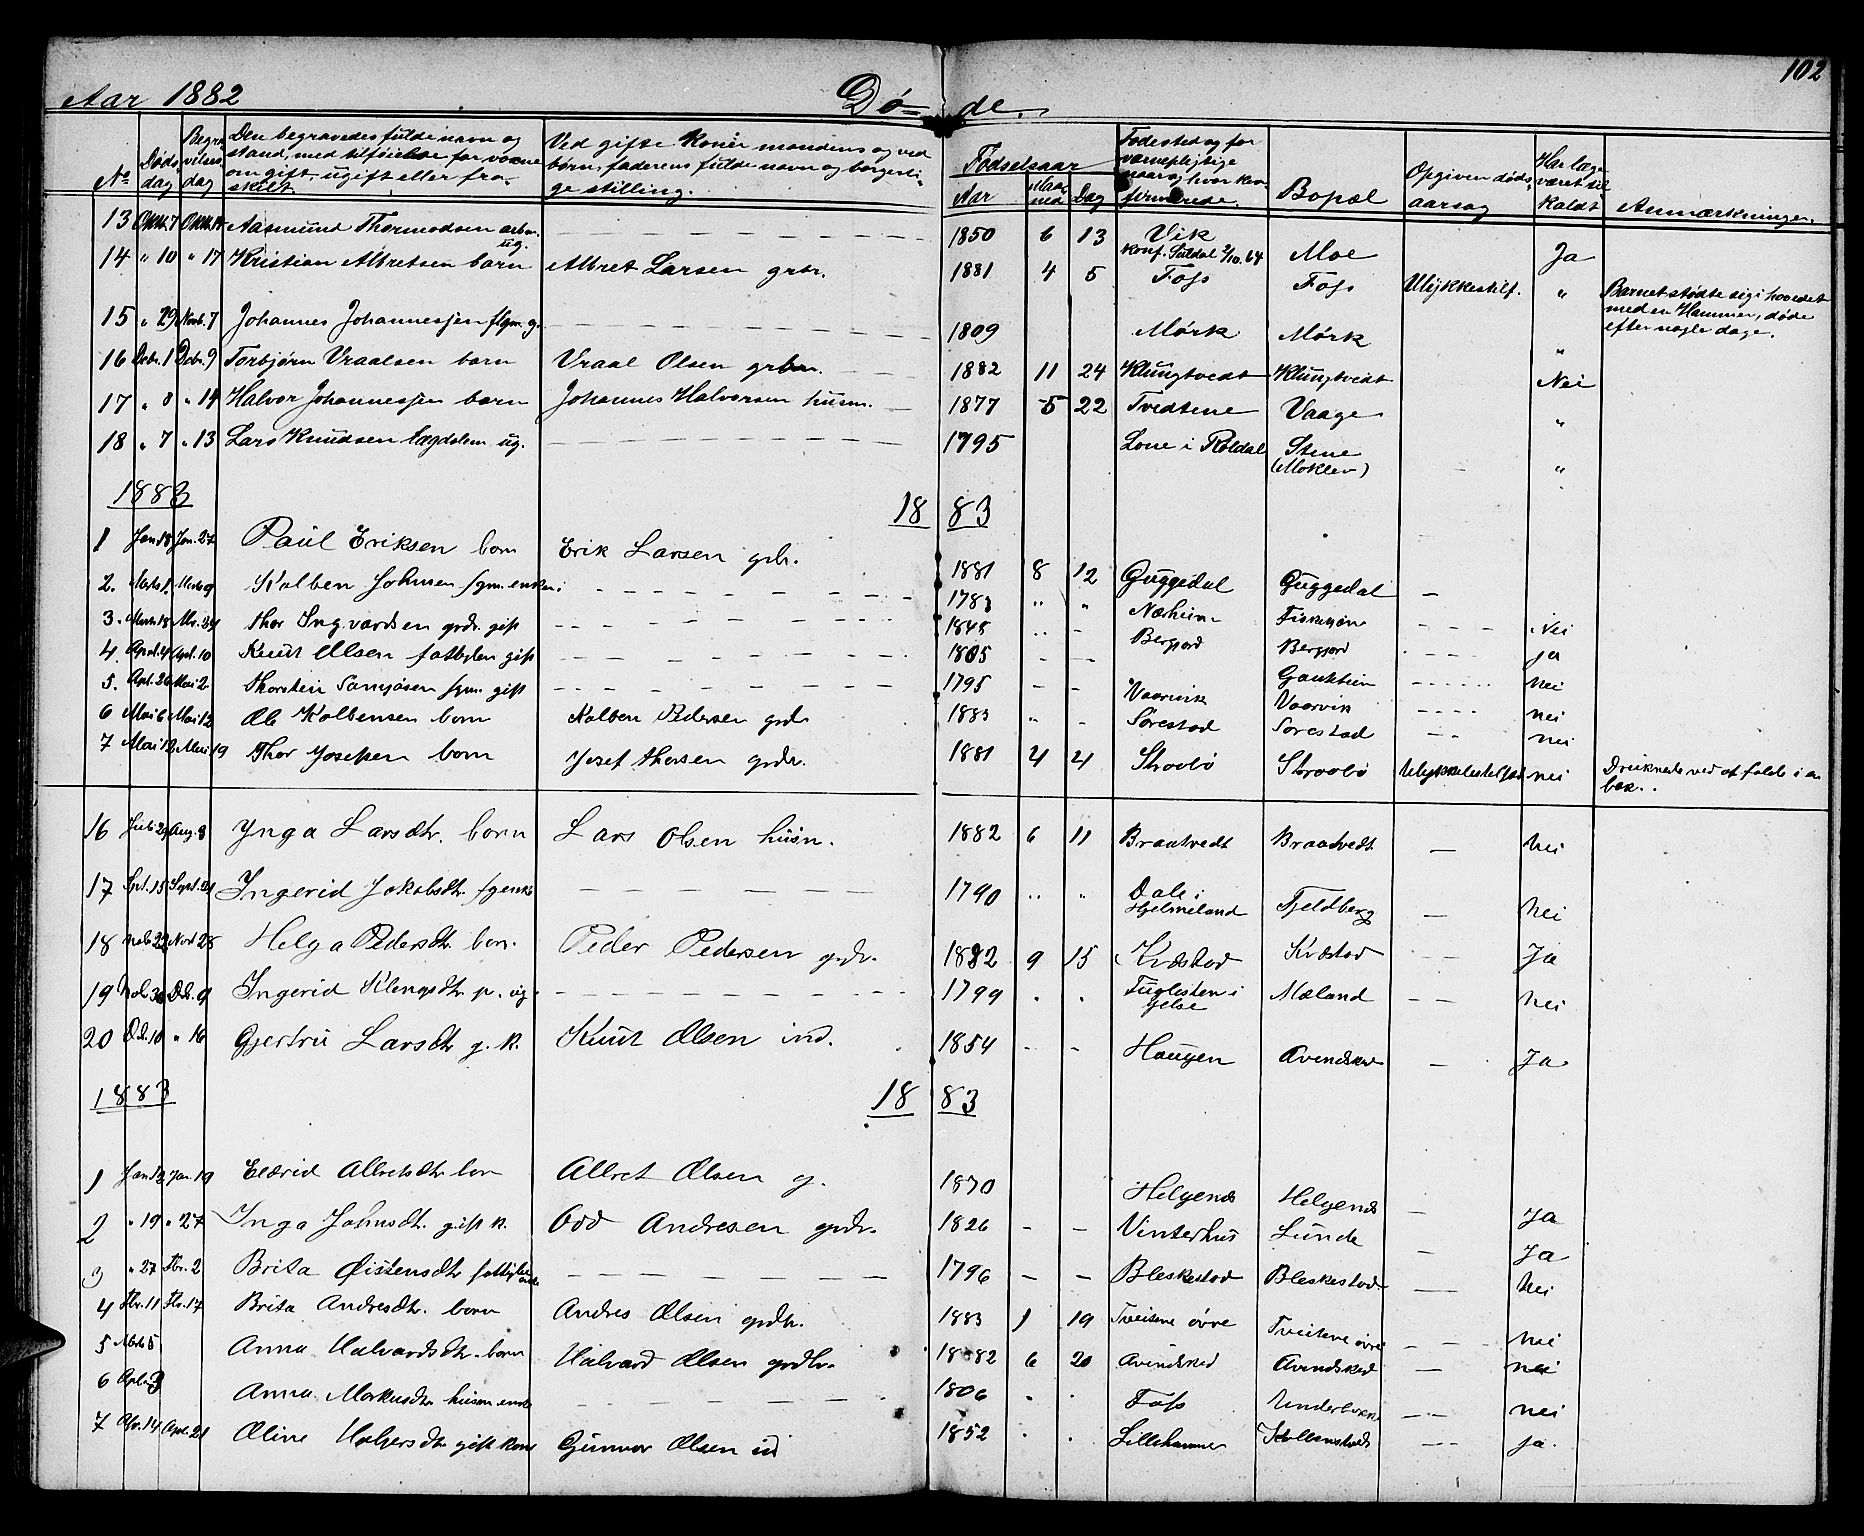 102
Aar 1882 Dö- de.
No Döds dag Begra velses dag Den begravedes fulde navn og stand, med tilföielse for voxne om gift, ugift eller fraskilt Ved gifte Koner mandens og ved börn, faderens fulde navn og borgerlige stilling. Födselsaar Aar Maaned Dag Födested og for værneplejtige naar og hvor konfirmerede. Bopæl Opgiven dödsaarsag Har læge været tilkaldt Anmærkninger.
13 Oktbr. 7 Oktbr. 14 Aasmund Thormodsen arbm. ug. 1850 6 13 Vik konf. Suldal 2/10.64 Moe Ja
14 " 10 " 17 Kristian Albretsen barn Albret Larsen grbr. 1881 4 5 Fofs Fofs Ulykkestilf. " Barnet stödte sig i hovedet med en Hammer, döde efter nogle dage.
15 " 29 Novb. 7 Johannes Johannesjen flgm. g. 1809 Mörk Mörk "
16 Dcbr. 1 Dcbr. 9 Torbjörn Vraalsen barn Vraal Olsen grbr. 1882 11 24 Klungtvedt Klungtvedt Nei
17 " 8 " 14 Halvor Johannesjen barn Johannes Halvorsen husm. 1877 5 22 Tvedtene Vaage "
18 " 7 " 13 Lars Knudsen lægdslem ug. 1795 Lone i Röldal Stene (Moklev) "
1883 18 83
1 Jan 18 Jan. 27 Paul Eriksen born Erik Larsen grbr. 1881 8 12 Guggedal Guggedal –
2. Marts 1. Marts 9 Kolben Johnsen fgm. enkem. 1783 " " Nærheim
3. Marts 18 Thor Ingvardsen grdr. gift 1848 " - Bergjord Nei
4. April 4 Apl. 10 Knut Olsen fatbylem gift 1805 - - Bergjord ja
5. Apl. 26 Mai 2 Thorstein fgm. gift 1795 - - Vaarvik nei
6 Mai 6 Mai 12 Ole Kolbensen born Kolben Pedersen grdr 1883 " - Sörestad Vaarvik Sorestad nei
7 Mai 12 Mai 19 Thor Josefsen born Josef Thorsen grdr. 1881 4 4 Straabö Straabö nei Druknede ved at falde i en bæk.
16 Juli 29 Aug. 8 Ynga Larsdtr. born Lars Olsen husm. 1882 6 11 Braatvedt Braatvedt – Nei
17 Spt. 15 Sept. 21 Ingerid Jakobsdtr. fgenke 1790 " " Dale i Hjelmeland Fjeldberg – Nei
18 Novb 22 Novb 28 Helga Pedersdtr. born. Peder Pedersen grdr. 1882 9 15 Kvæstad Kvæstad – – Ja
19 Novb. 30 Dcb. 9 Ingerid Klengsdtr. p. ug. 1799 " " Fuglesten i Jelse Mæland – – Nei
20 Dcb. 10 " 16 Gjertru Larsdtr g. k. Knut Olsen ind. 1854 - - Haugen – Ja
1883 18 83
1 Jan 13 Jan. 19 Eldrid Albretsdtr born Albret Olsen g. 1870 Helgenæs Helgenæs – Ja
2 " 19 " 27 Inga Johnsdtr. gift k. Odd Andresen grdr. 1826 - - Vinterhus Lunde – Ja
3 " 27 Fbr. 2 Brita Östensdtr fattiglem enke 1796 – – Bleskestad Bleskestad – Nei
4 Fbr. 11 Fbr. 17 Brita Andresdtr. born Andres Olsen grdbr. 1883 1 19 Tveitene övre Tveitene övre – – Nei
5 Mrts 5 Anna Halvardsdtr. born Halvard Olsen grdbr. 1882 6 20 – nei
6 Aplr 3 Anna Markusdtr husm enke 1806 " " Fofs – – nei
7 Apr. 14 Apr. 21 Oline gift kone Gunnar Olsen id 1852 " " Lillehammer – – ja.